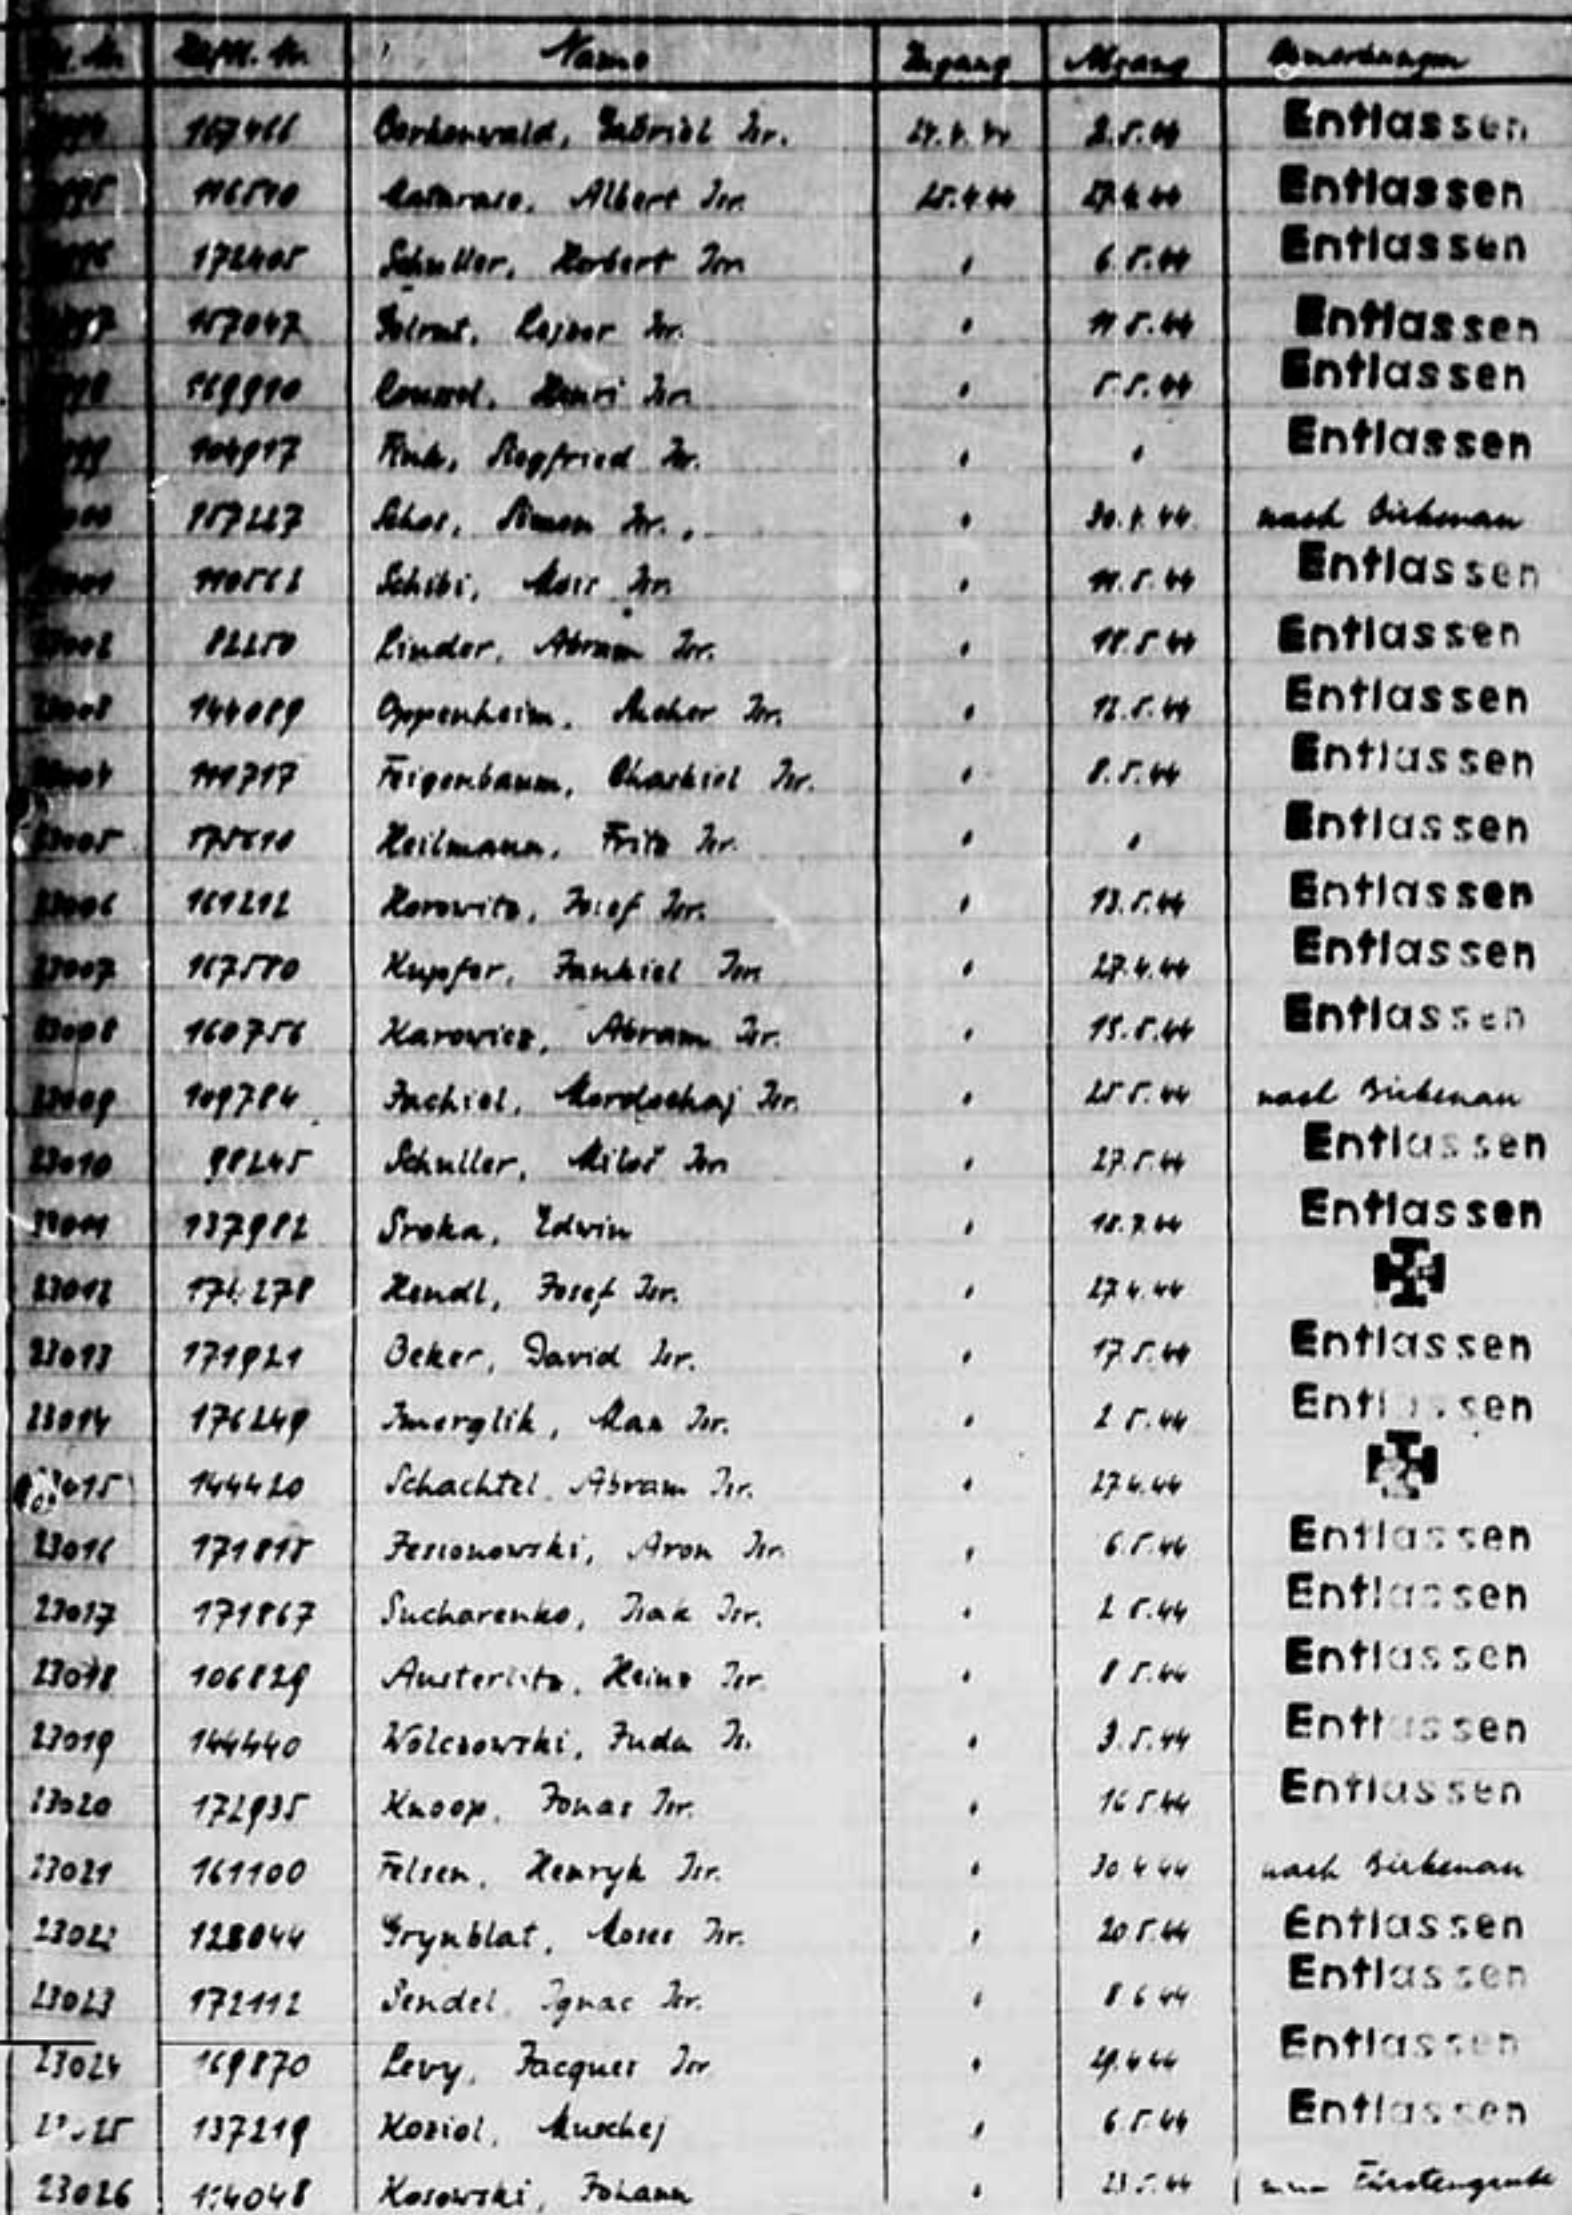 Name Zugang Abgang Bemerkungen
Gabriel Isr. 2.5.44 Entlassen
116510 Albert Isr. 25.4.44 27.4.44 Entlassen
172405 Schuller, Herbert Isr. " 6.5.44 Entlassen
157047 Isr. " 11.5.44 Entlassen
169910 Henri Isr. " 5.5.44 Entlassen
104917 Fink, Siegfried Isr. " " Entlassen
157227 Simon Isr. " 30.4.44 nach Birkenau
Schibi, Isr. " 11.5.44 Entlassen
23002 82250 Linder, Abram Isr. " 18.5.44 Entlassen
23003 144089 Oppenheim, Isr. " Entlassen
23004 Feigenbaum, Chaskiel Isr. " 8.5.44 Entlassen
23005 Heilmann, Fritz Isr. " " Entlassen
23006 161212 Horowitz, Josef Isr. " 13.5.44 Entlassen
23007 167580 Kupfer, Jankiel Isr. " 27.4.44 Entlassen
23008 160756 Karowicz, Abram Isr. " 15.5.44 Entlassen
23009 109784 Jachiel, Mordechaj Isr. " 25.5.44 nach Birkenau
23010 98245 Schuller, Miloš Isr. " 27.5.44 Entlassen
23011 137982 Sroka, Edwin " 18.7.44 Entlassen
23012 174278 Hendl, Josef Isr. " 27.4.44
23013 171921 Beker, David Isr. " 17.5.44 Entlassen
23014 176249 Imerglik, Max Isr. " 2.5.44 Entlassen
23015 144420 Schachtel, Abram Isr. " 27.4.44
23016 171818 Jesionowski, Aron Isr. " 6.5.44 Entlassen
23017 171867 Sucharenko, Isak Isr. " 2.5.44 Entlassen
23018 106829 Austerlitz, Heinz Isr. " 8.5.44 Entlassen
23019 144440 Wolczowski, Juda Is. " 3.5.44 Entlassen
23020 172935 Knoop, Jonas Isr. " 16.5.44 Entlassen
23021 161100 Felsen, Henryk Isr. " 30.4.44 nach Birkenau
23022 128044 Grynblat, Moses Isr. " 20.5.44 Entlassen
23023 172112 Sendel, Ignac Isr. " 8.6.44 Entlassen
23024 169870 Levy, Jacques Isr " 29.4.44 Entlassen
23025 137219 Koziol, " 6.5.44 Entlassen
23026 Kosowski, Johann " 23.5.44 Fürstengrube